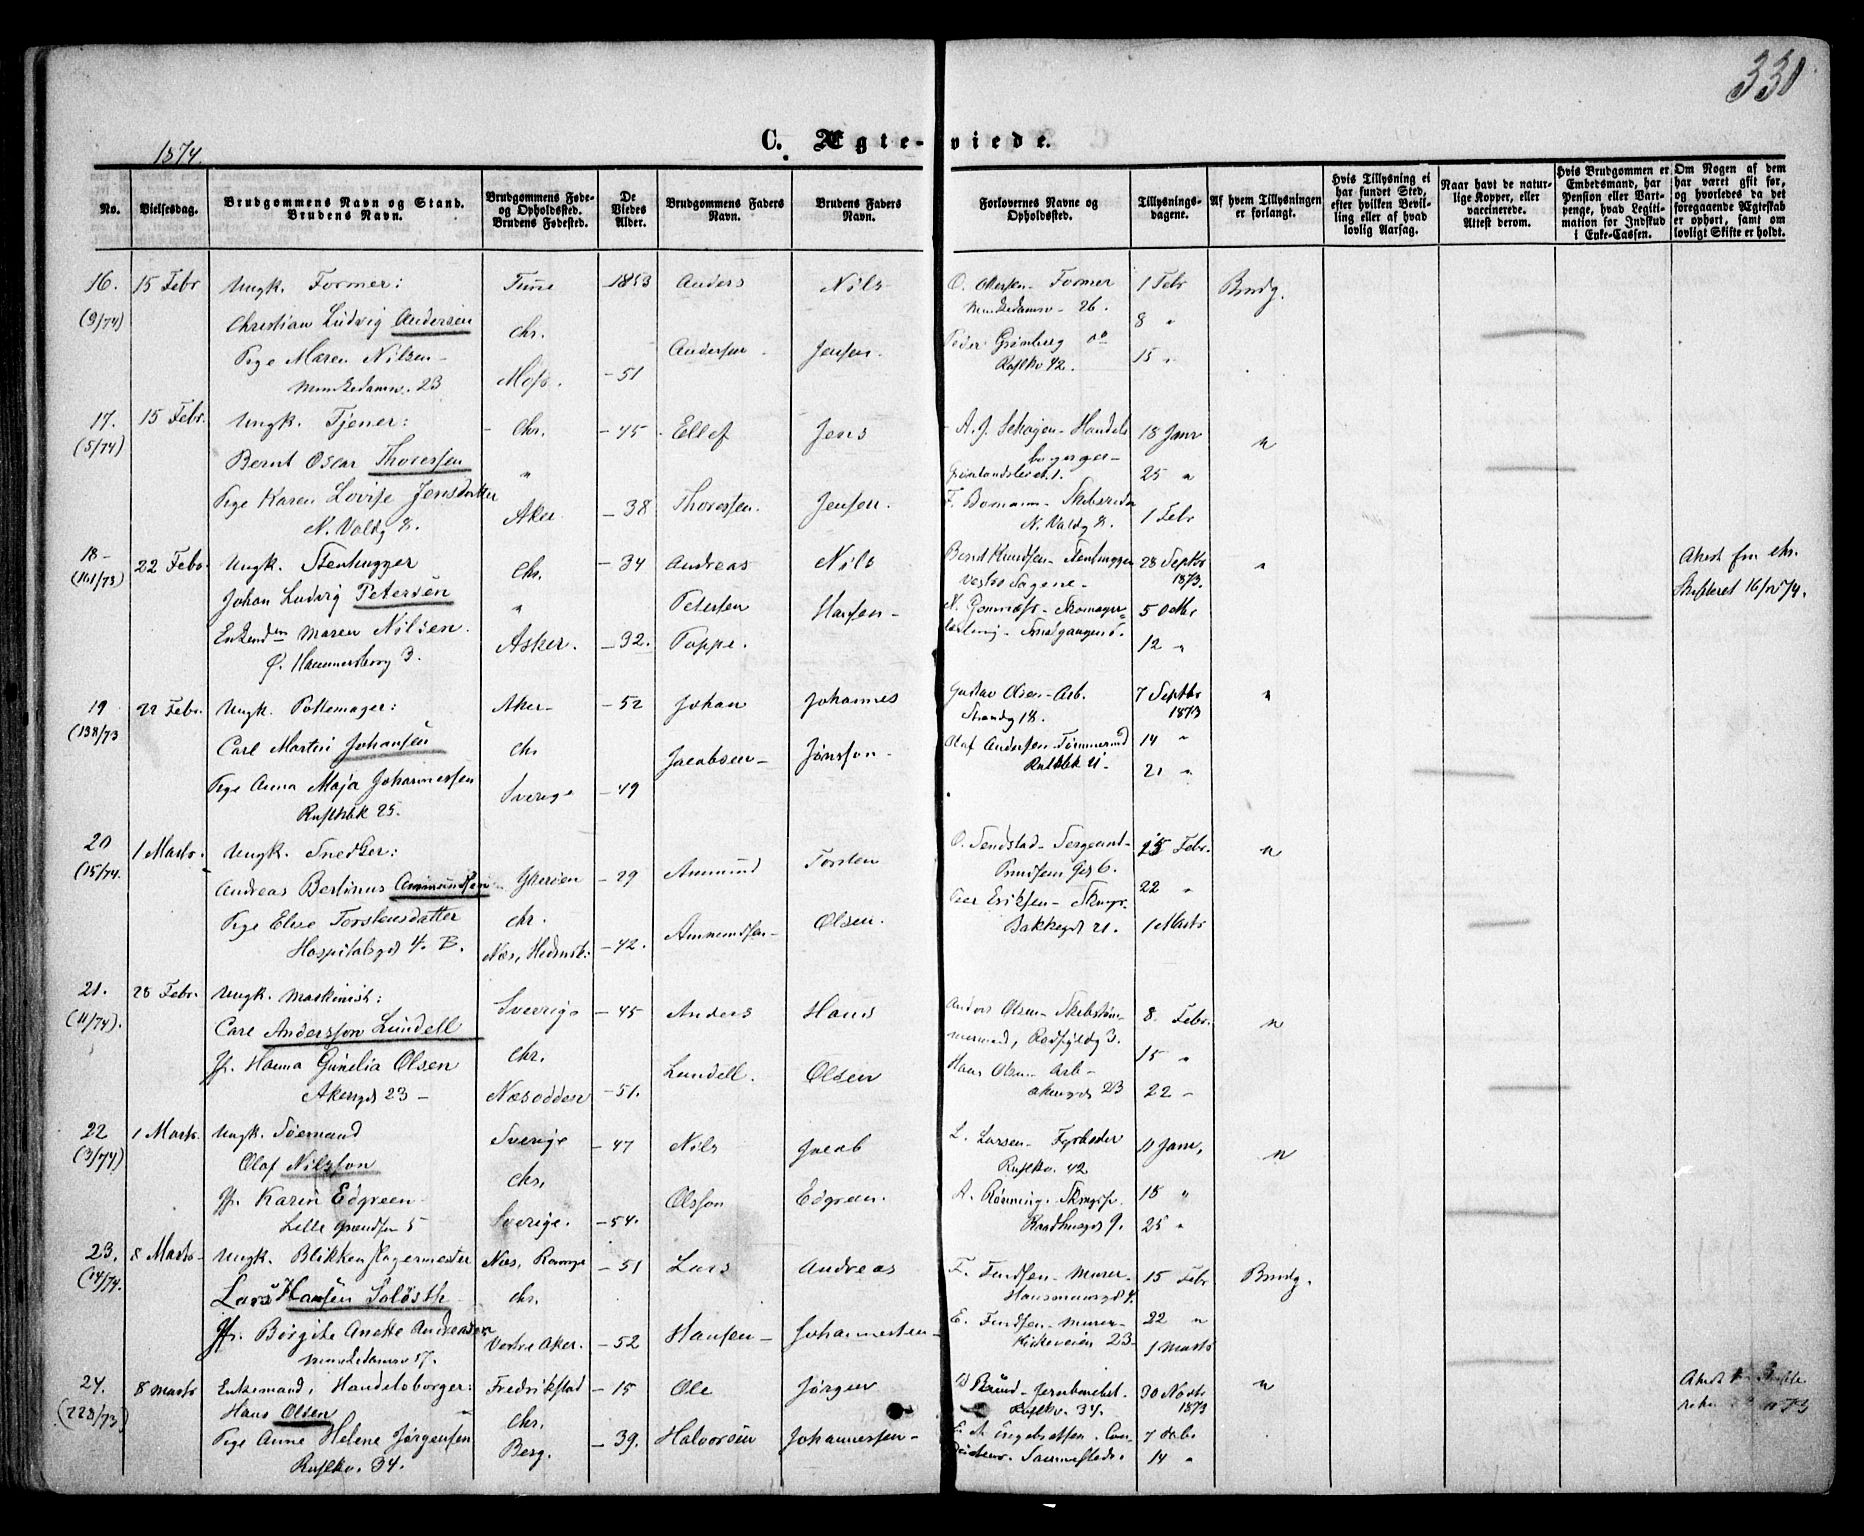 330
1874.
C. Ægte-viede.
No.
Vielsesdag.
Brudgommens Navn og Stand.
Brudens Navn.
Brudgommens Føde-
og Opholdsted.
Brudens Fødested.
De
Viedes
Alder.
Brudgommens Faders
Navn.
Brudens Faders
Navn.
Forlovernes Navne og
Opholdsted.
Tillysnings-
dagene.
Af hvem Tillysningen
er forlangt.
Hvis Tillysning ei
har fundet Sted,
efter hvilken Bevil-
ling eller af hvad
lovlig Aarsag.
Naar havt de natur-
lige Kopper, eller
vaccinerede.
Attest derom.
Hvis Brudgommen er
Embedsmand, har
Pension eller Vart-
penge, hvad Legiti-
mation for Indskud
i Enke-Cassen.
Om Nogen af dem
har været gift før,
og hvorledes da det
foregaaende Ægteskab
er ophørt, samt om
lovligt Skifte er holdt.
16. 15 Febr Ungk. Former: Tune -1853 Anders Nils O. Olsen- Former 1 Febr Brudg.
(9/74) Christian Ludvig Andersen Chr. Munkedamsv- 26. 8 "
Pige Maren Nilsen- Andersen Jensen. Peder Grønberg do 15 "
Munkedamsv. 23 Moss. -51 Rosflkv 42.
17. 15 Febr. Ungk. Tjener: Chr. -45 Ellef Jens A. J. Schøjen- Handels 18 Janr "
(5/74) Bernt Oscar Thoresen " borger Grønlandsleret 1. 25 "
Pige Karen Lovise Jensdatter Aker -38 Thoresen. Jensen. F. Bomann- Skibsreder
N. Voldg 8. N. Voldg 8. 1 Febr
18- 22 Febr. Ungk. Stenhugger Chr. -34 Andreas Nils Bernt Knudsen- Stenhugger 28 Septbr 1873. " Attest fra chr.
(161/73) Johan Ludvig Petersen " Petersen Hansen- Vestre Sagene- Skifteret 16/2 74.
Enkemden Maren Nilsen. Asker. -32. Toppe. 5 Octbr
Ø. Hammersborg 3. Smalgangen 5. 12 "
19 22 Febr. Ungk. Pottemager: Aker- -52 Johan Johannes Gustav Olsen- Arb. 7 Septbr 1873 "
(138/73 Carl Martin Johansen Chr Jacobsen- Jönsson- Strandg 18. 14 "
Pige Anna Maja Johannessen Sverige -49 Olaf Andersen- Tømmermd 21 "
Rusflkbk 25. Rusflkbk 21-
20 1 Marts. Ungk. Snedker: Ytterøen -29 Ammund Torsten O. Sendstad- Sergeant- 15 Febr. "
(15/74. Andreas Bertinus Ammundsen Chr. Prindsens Gd 6. 22 "
Pige Elise Torstensdatter Næs, Hedmk: -42. Ammundsen- Olsen. Peer Eriksen- Skomgr. 1 Marts
Hospitalsgd 4. B. Bakkegd 21.
21. 28 Febr. Ungk. Maskinist: Sverige -45 Anders Hans Anders Olsen- Skibstøm- 8. Febr. "
(11/74). Carl Andersson Lundell Chr. mermd, Rødfyldg 3. 15 "
Jfr. Hanna Gunelia Olsen Næsodden -51. Lundell. Olsen Hans Olsen- Arb-
Akersgd 23- Akersgd 23 22 "
22 1 Marts. Ungk. Sømand Sverige -47 Nils Jacob L. Larsen- Fyrbøder 11 Janr, "
(3/74) Olof Nilsson Chr. Rusflkv. 42
Jfr. Karin Edgreen- Sverige. -54. Olsson Edgreen. A. Rønning- Skrægsp. 18 "
Lille Grændsen 5 Raadhusgd 9. 25 "
23. 8 Marts- Ungk. Blikkenslagermester Næs, Romrge -51 Lars Andreas F. Findsen- Murer- 15 Febr Brudg.
(14/74. Lars Hansen Soløsth Chr. Hausmannsgd 4.
Jfr. Birgite Anette Andreasen Vestre Aker. -52 Hansen- Johannesen- E. Findsen- Murer- 22 "
Munkedamsv 57. Kirkeveien 23- 1 Marts
24. 8 Marts Enkemand, Handelsborger: Fredrikstad -15 Ole Jørgen Brun- Jernbanebet. 30 Novbr 1873 " Attest fra Skifte
(228/73) Hans Olsen Chr. Rusflkv. 34. 73
Pige Anne Helene Jørgensen Berg. -39. Halvorsen Johannessen- E. A. Engebretsen. Con- 7 Decbr
Rusflkv. 34. ducteur. Sammesteds. 14 "